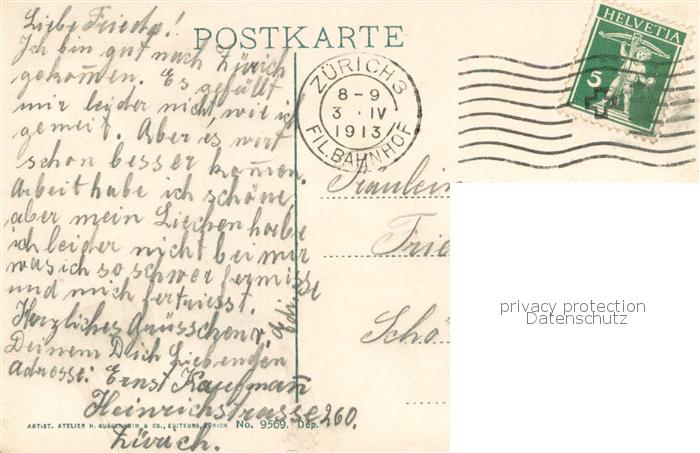 Liebe Frieda!
Ich bin gut nach Zürich
gekom̄en. Es gefällt
mir leider nicht, wie ich
gemeit. Aber es wirt
schon besser kom̄en.
Arbeit habe ich schöne
aber mein Liebchen habe
ich leider nicht bei mir
was ich so schwer fermisse
und mich fertriesst.
Herzliches Grüsschen v.
Deinem Dich Liebenden
Adresse: Ernst Kaufman̄
Heinrichstrasse 260.
Zürich.
POSTKARTE
ZÜRICH 3
8-9
3. IV
1913
FILBAHNHOF
HELVETIA
5
Fräulein
Frie
Schö
privacy protection
Datenschutz
ARTIST. ATELIER H. GUGGENHEIM & CO., EDITEURS, ZÜRICH No. 9569. Dép.